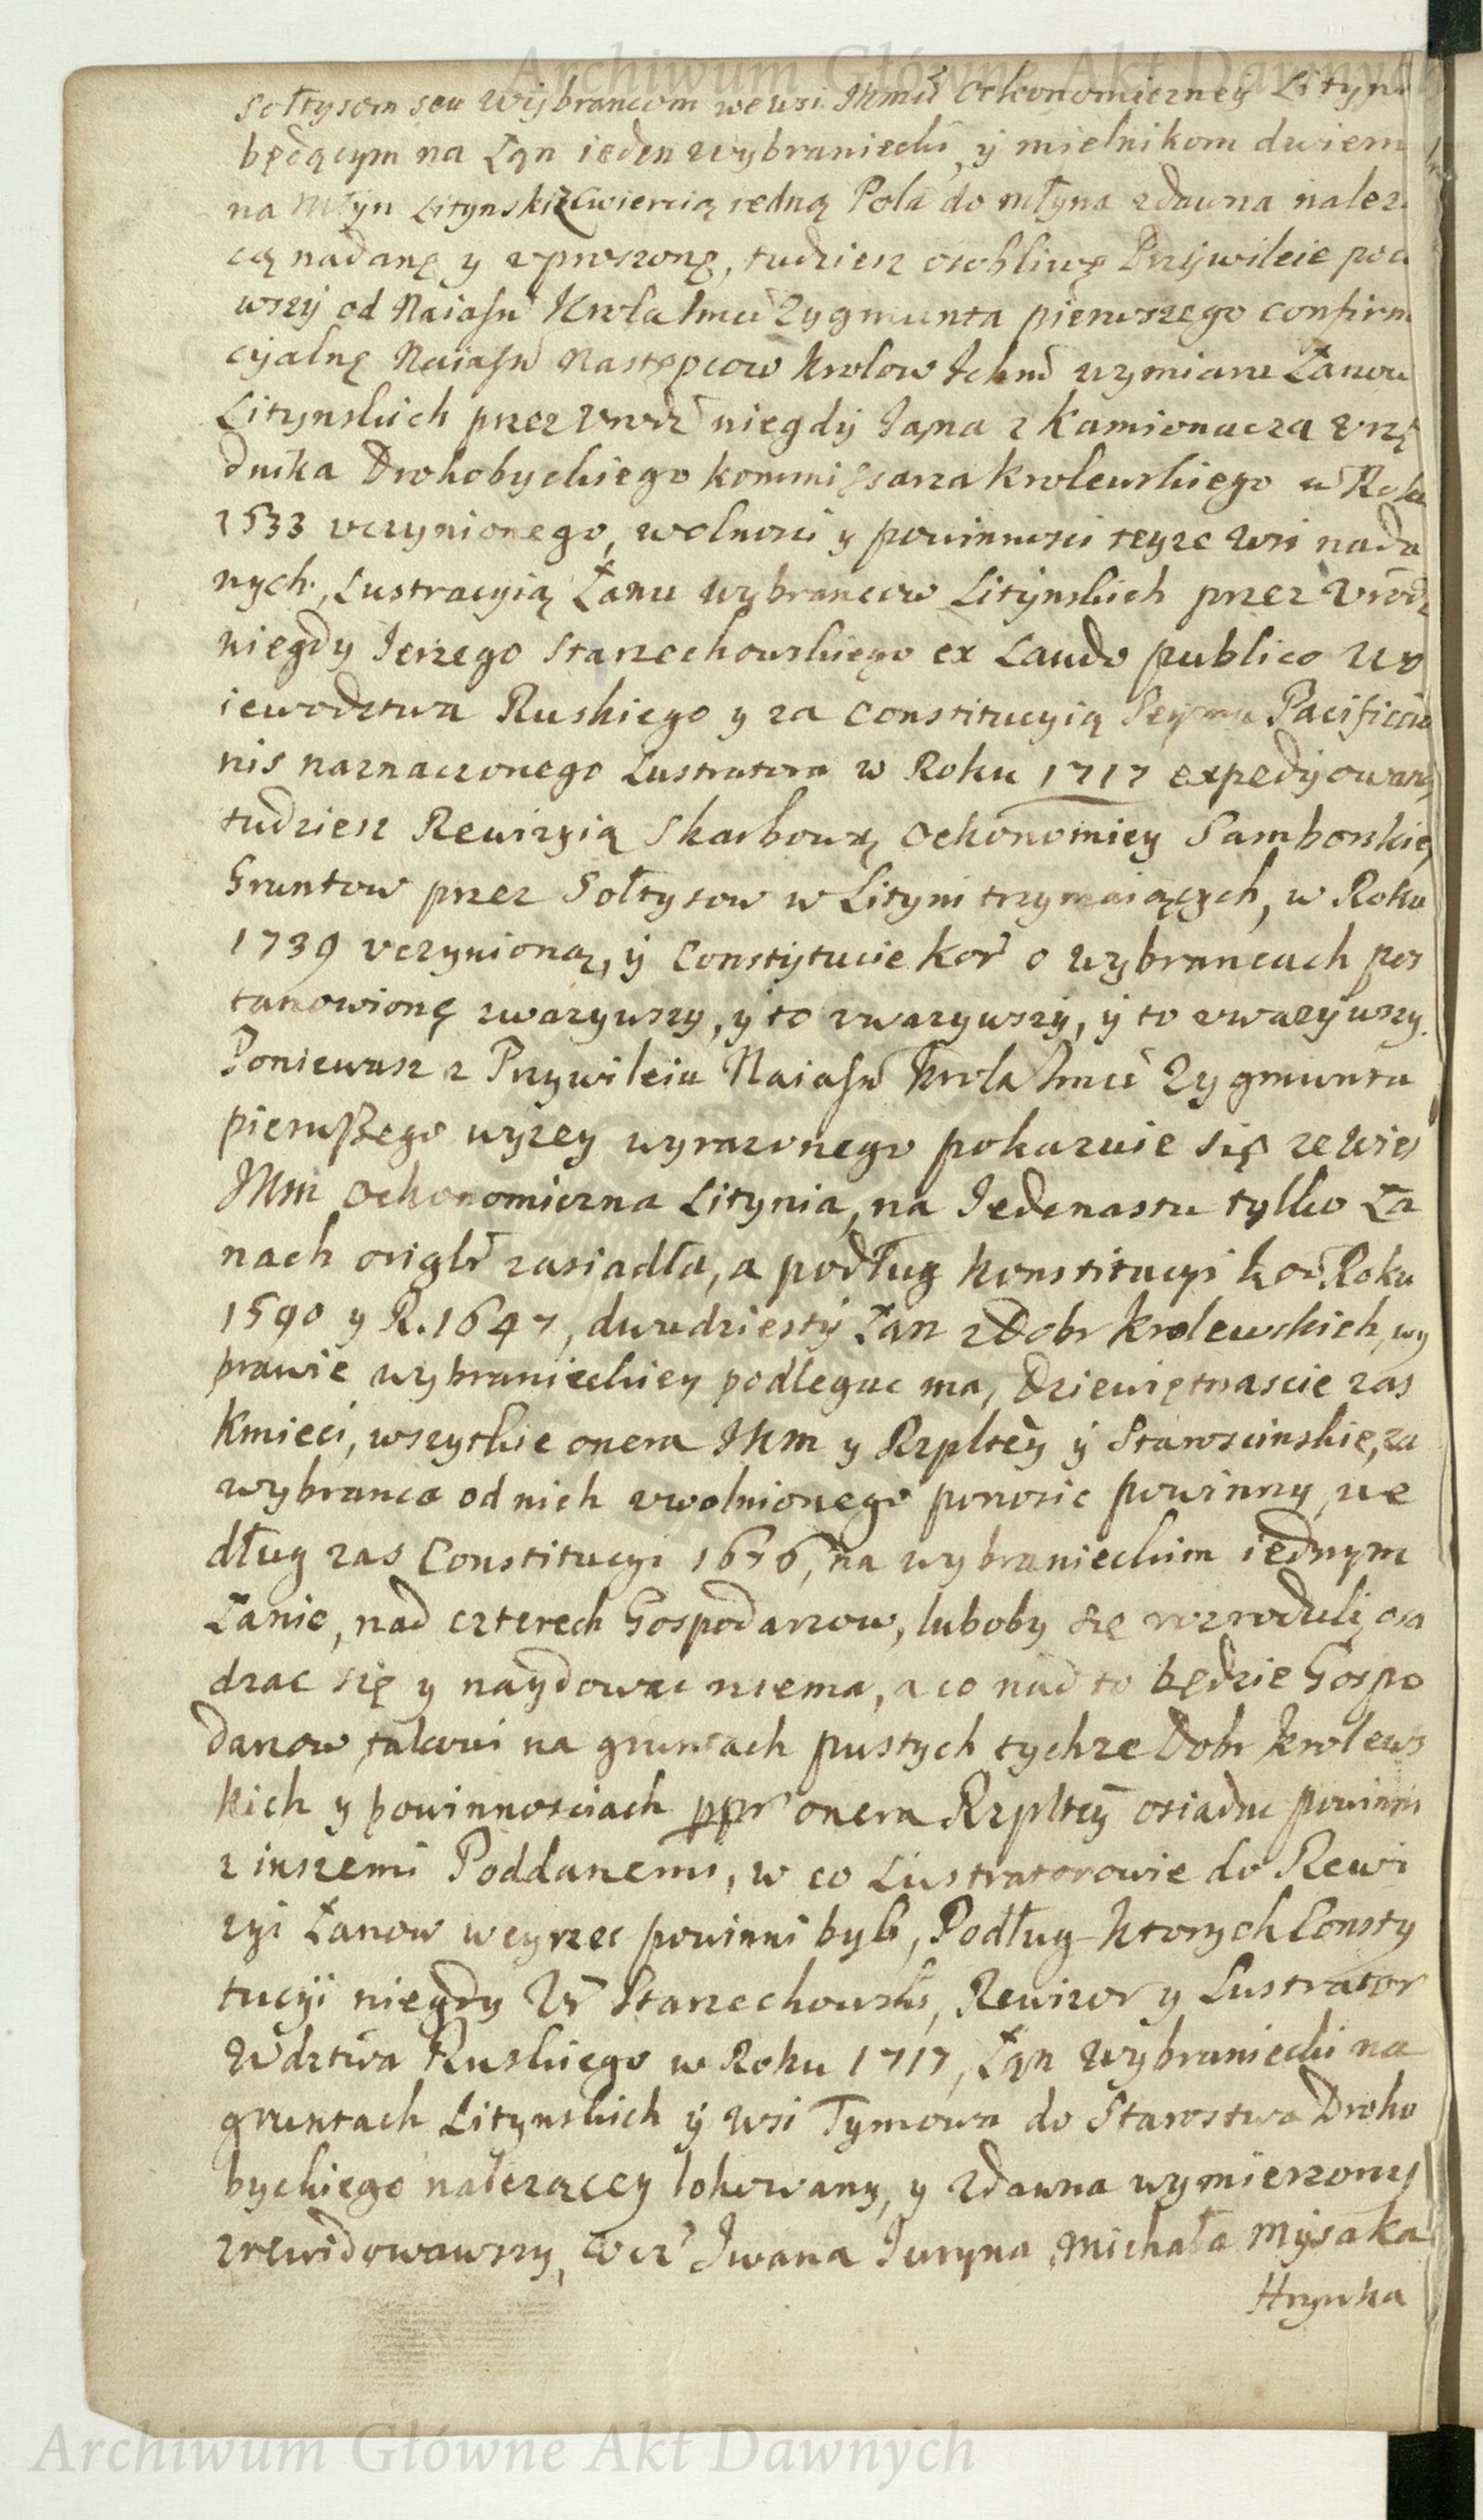 Archiwum Główne Akt Dawnych
Sołtysom seu Wybrancom we wsi JKmci Oekonomiczney Lityni
będącym na Łan ieden wybraniecki, y mielnikom dwiem
na Młyn Litynski z cwiercią iedną Pola do młyna zdawna nalezą
cą nadanę y uproszonę, tudziesz osobliwę Przywileie pocz
wszy od Naiasń Krola Jmci Zygmunta pierwszego confirm
cyjalnę Naiasń Następcow Krolow Ichmć wymiaru Łanow
Litynskich przez Urodz niegdy Jana z Kamionacza Urzę
dnika Drohobyckiego kommissarza krolewskiego w Roku
1533 uczynionego, wolnosci y powinnosci teyze wsi nada
nych, Lustracyią Łanu wybrancow Litynskich przez Urodz
niegdy Jerzego Starzechowskiego ex Laudo publico Wo
iewodztwa Ruskiego y za Constitucyią Seymu Pacificatio
nis naznaczonego Lustratora w Roku 1717 expedyiowaną
tudziesz Rewizyią Skarbową Oekonomiey Samborskiey
Gruntow przez Sołtysow w Lityni trzymaiących, w Roku
1739 uczynioną, y Constytucie Kor̃ o wybrancach pos
tanowionę zwazywszy, y to uwazywszy, y to uwazywszy.
Poniewasz z Przywileiu Naiasń Krola Jmci Zygmunta
pierwszego wyzey wyrazonego pokazuie się ze wies
JKm Oekonomiczna Litynia, na Jedenastu tylko Ła
nach origlr zasiadła, a podług Konstitucyi Kor̃ Roku
1590 y R. 1647, dwudziesty Łan z Dobr krolewskich, wy
prawie wybranieckiey podlegac ma, Dziewiętnascie zas
Kmieci, wszytkie onera JKm y Rzpltey y Staroscinskie, za
wybranca od nich uwolnionego ponosic powinny, we
dług zas Constitucyi 1676, na wybranieckim iednym
Łanie, nad czterech Gospodarzow, luboby się rozrodzili, osa
dzac się y naydowac niema, a co nad to będzie Gospo
darzow, takowi na gruntach pustych tychze Dobr krolews
kich y powinnosciach ppr onera Rzpltey osiadac powinni
z inszemi Poddanemi, w co Lustratorowie do Rewi
zyi Łanow weyrzec powinni byli, Podług ktorych Consty
tucyi niegdy Ur̃ Starzechowski, Rewizor y Lustrator
Wdztwa Ruskiego w Roku 1717, Łan wybraniecki na
gruntach Litynskich y wsi Tymowa do Starostwa Droho
byckiego nalezącey lokowany, y zdawna wymierzony
zrewidowawszy, Iwana Juryna, Michała Mysaka
Hrynka
Archiwum Główne Akt Dawnych